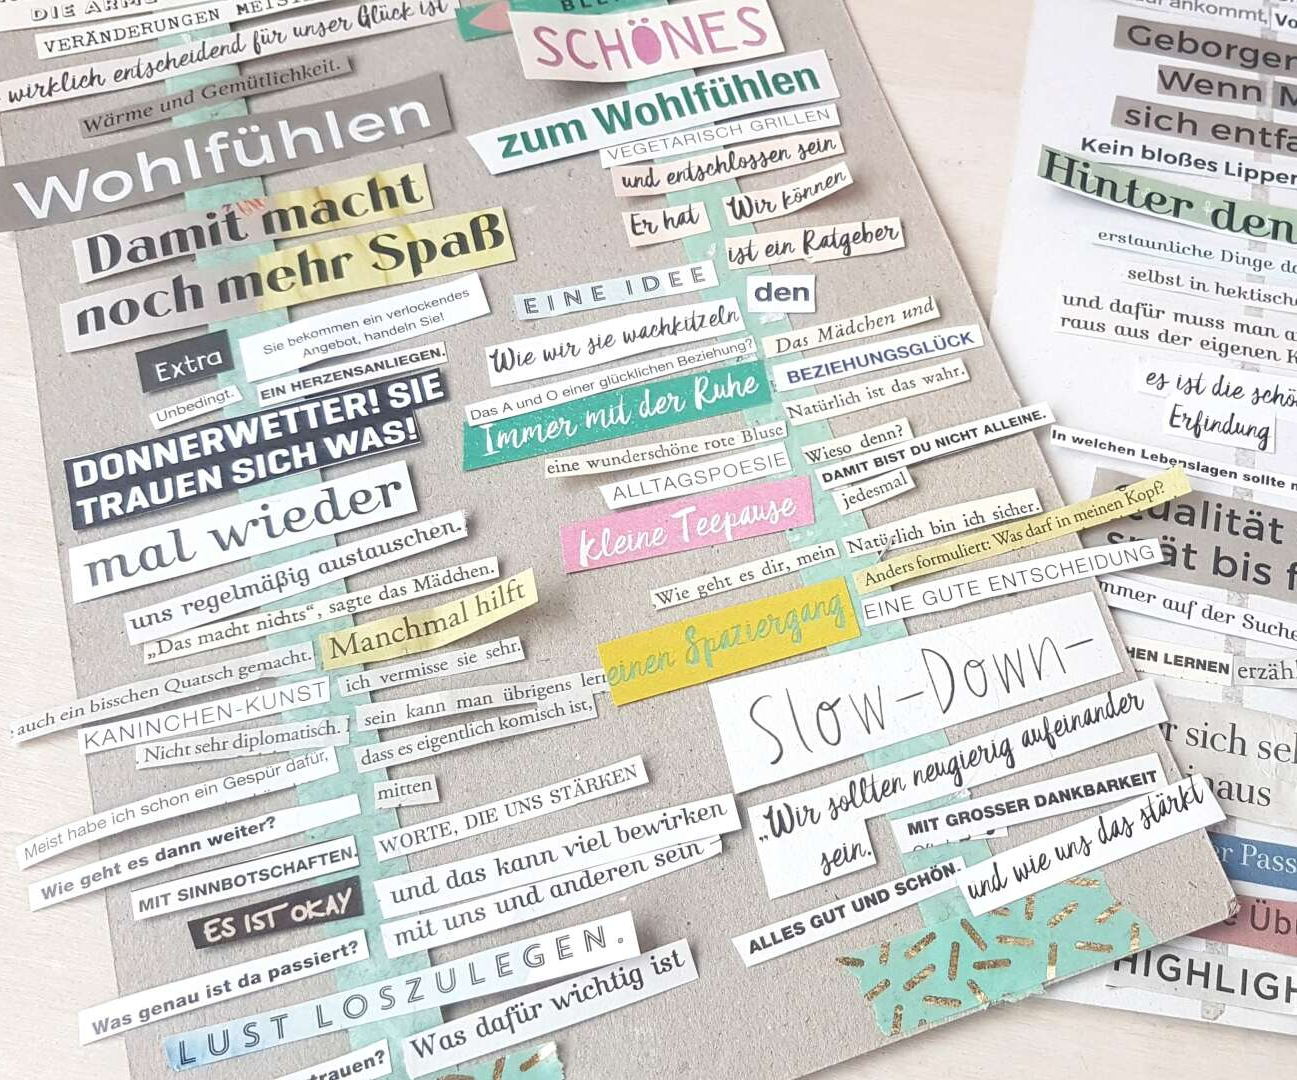 DIE
VERÄNDERUNGEN
wirklich entscheidend für unser Glück ist
Wärme und Gemütlichkeit.
Wohlfühlen
Damit macht
noch mehr Spaß
Sie bekommen ein verlockendes
Angebot, handeln Sie!
Extra
EIN HERZENSANLIEGEN.
Unbedingt.
DONNERWETTER! SIE
TRAUEN SICH WAS!
mal wieder
uns regelmäßig austauschen.
„Das macht nichts“, sagte das Mädchen.
Manchmal hilft
auch ein bisschen Quatsch gemacht.
ich vermisse sie sehr.
KANINCHEN-KUNST
sein kann man übrigens
Nicht sehr diplomatisch.
dass es eigentlich komisch ist,
Meist habe ich schon ein Gespür dafür,
mitten
Wie geht es dann weiter?
WORTE, DIE UNS STÄRKEN
MIT SINNBOTSCHAFTEN.
und das kann viel bewirken
ES IST OKAY
mit uns und anderen sein –
Was genau ist da passiert?
LUST LOSZULEGEN.
Was dafür wichtig ist
trauen?
SCHÖNES
zum Wohlfühlen
VEGETARISCH GRILLEN
und entschlossen sein
Er hat
Wir können
ist ein Ratgeber
EINE IDEE
den
Wie wir sie wachkitzeln
Das Mädchen und
Das A und O einer glücklichen Beziehung?
BEZIEHUNGSGLÜCK
Immer mit der Ruhe
Natürlich ist das wahr.
eine wunderschöne rote Bluse
Wieso denn?
ALLTAGSPOESIE
DAMIT BIST DU NICHT ALLEINE.
jedesmal
kleine Teepause
Natürlich bin ich sicher.
Wie geht es dir, mein
Anders formuliert: Was darf in meinen Kopf?
einen Spaziergang
EINE GUTE ENTSCHEIDUNG
Slow-Down-
„Wir sollten neugierig aufeinander
sein.
MIT GROSSER DANKBARKEIT
und wie uns das stärkt
ALLES GUT UND SCHÖN.
ankommt,
Geborgen
Wenn M
sich entfa
Kein bloßes Lippen
Hinter den
erstaunliche Dinge
selbst in hektische
und dafür muss man a
raus aus der eigenen K
es ist die schö
Erfindung
In welchen Lebenslagen sollte
ualität
spät bis f
mmer auf der Suche
HEN LERNEN
erzäh
r sich sel
naus
r Pass
e Üb
HIGHLIGH